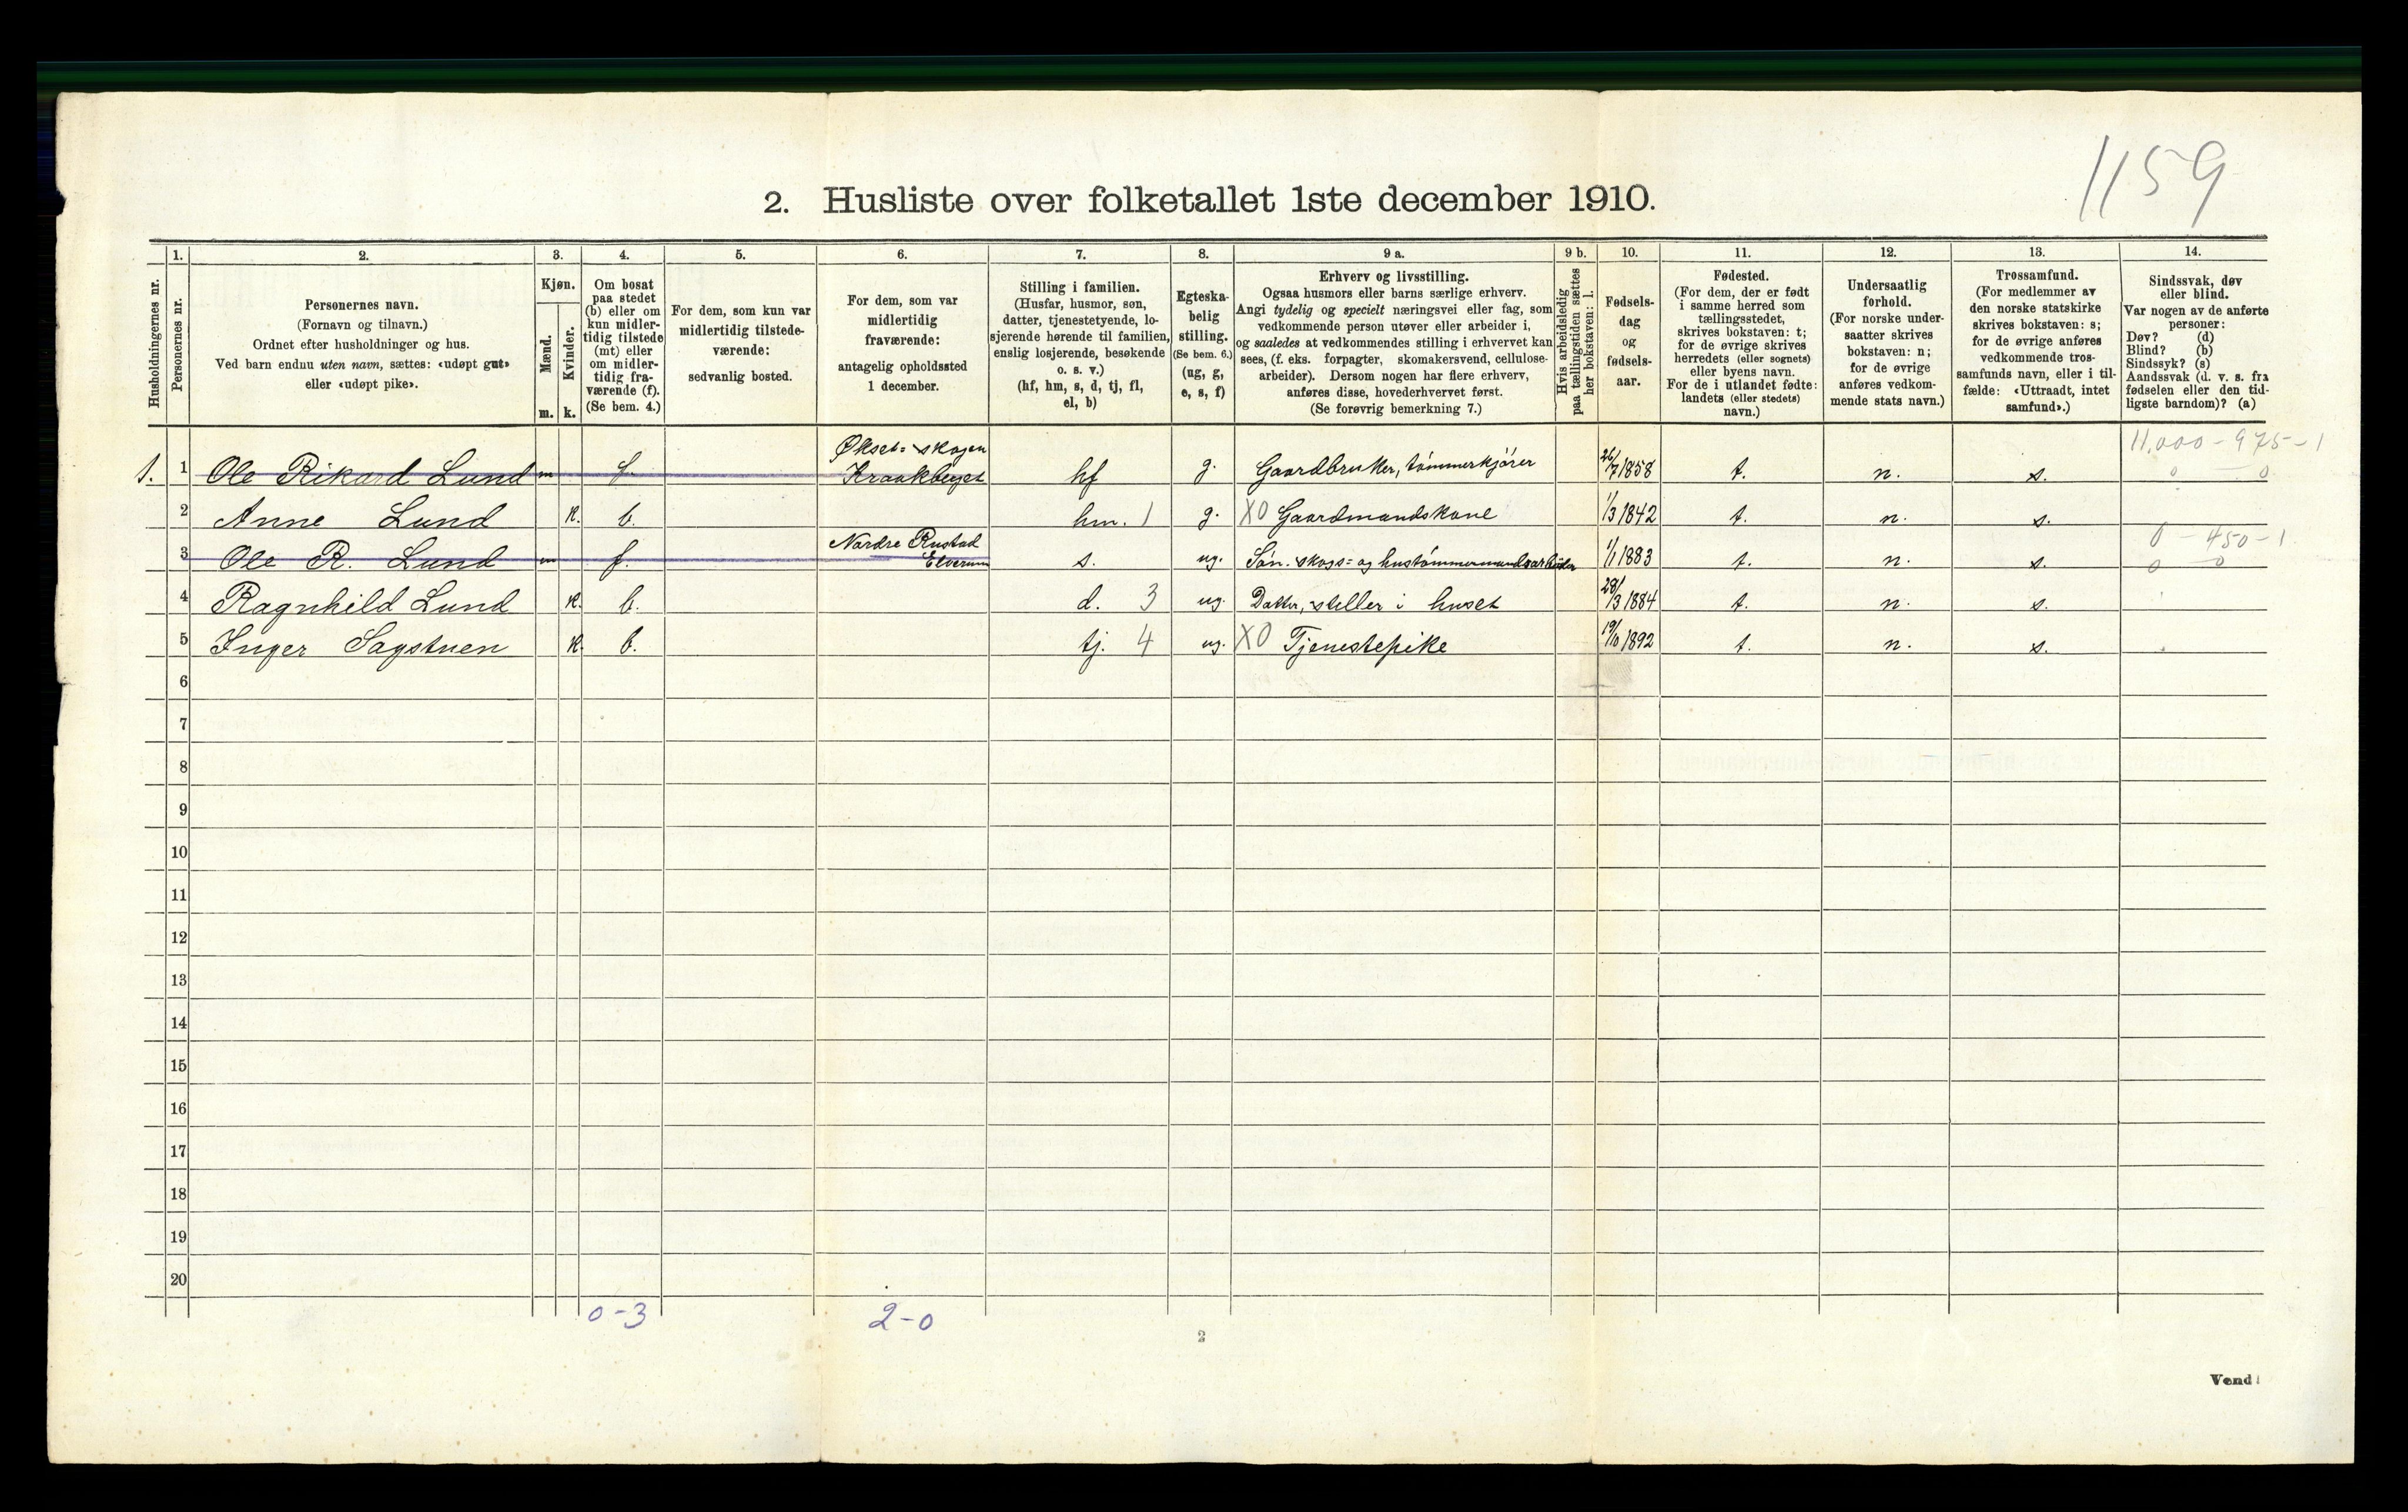 1159
2. Husliste over folketallet 1ste december 1910.
1. 2. 3. 4. 5. 6. 7. 8. 9 a. 9 b. 10. 11. 12. 13. 14.
Husholdningernes nr.
Personernes nr.
Personernes navn.
(Fornavn og tilnavn.)
Ordnet efter husholdninger og hus.
Ved barn endnu uten navn, sættes: «udøpt gut»
eller «udøpt pike».
Kjøn.
Mænd.
Kvinder.
m. k.
Om bosat
paa stedet
(b) eller om
kun midler-
tidig tilstede
(mt) eller
om midler-
tidig fra-
værende (f).
(Se bem. 4.)
For dem, som kun var
midlertidig tilstede-
værende:
sedvanlig bosted.
For dem, som var
midlertidig
fraværende:
antagelig opholdssted
1 december.
Stilling i familien.
(Husfar, husmor, søn,
datter, tjenestetyende, lo-
sjerende hørende til familien,
enslig losjerende, besøkende
o. s. v.)
(hf, hm, s, d, tj, fl,
el, b)
Egteska-
belig
stilling.
(Se bem. 6.)
(ug, g,
e, s, f)
Erhverv og livsstilling.
Ogsaa husmors eller barns særlige erhverv.
Angi tydelig og specielt næringsvei eller fag, som
vedkommende person utøver eller arbeider i,
og saaledes at vedkommendes stilling i erhvervet kan
sees, (f. eks. forpagter, skomakersvend, cellulose-
arbeider). Dersom nogen har flere erhverv,
anføres disse, hovederhvervet først.
(Se forøvrig bemerkning 7.)
Hvis arbeidsledig
paa tællingstiden sættes
her bokstaven: l.
Fødsels-
dag
og
fødsels-
aar.
Fødested.
(For dem, der er født
i samme herred som
tællingsstedet,
skrives bokstaven: t;
for de øvrige skrives
herredets (eller sognets)
eller byens navn.
For de i utlandet fødte:
landets (eller stedets)
navn.)
Undersaatlig
forhold.
(For norske under-
saatter skrives
bokstaven: n;
for de øvrige
anføres vedkom-
mende stats navn.)
Trossamfund.
(For medlemmer av
den norske statskirke
skrives bokstaven: s;
for de øvrige anføres
vedkommende tros-
samfunds navn, eller i til-
fælde: «Uttraadt, intet
samfund».)
Sindssvak, døv
eller blind.
Var nogen av de anførte
personer:
Døv? (d)
Blind? (b)
Sindssyk? (s)
Aandssvak (d. v. s. fra
fødselen eller den tid-
ligste barndom)? (a)
Økset= skogen 11,000 - 975 - 1
1. 1 Ole Rikard Lund m f. Kraakberget hf g. Gaardbruker, tømmerkjører 26/7 1858 t. n. s. 0 0
2 Anne Lund k. b. hm. 1 g. X0 Gaardmandskone 1/3 1842 t. n. s.
Nordre Rustad 0 - 450 - 1.
3 Ole R. Lund m f. Elverum s. ug. Søn. skogs= og hustømmermandsarbeider 1/1 1883 t. n. s. 0 0
4 Ragnhild Lund k. b. d. 3 ug. Datter, steller i huset 28/3 1884 t. n. s.
5 Inger Sagstuen k. b. tj. 4 ug. X0 Tjenestepike 19/10 1892 t. n. s.
6
7
8
9
10
11
12
13
14
15
16
17
18
19
20
0-3 2-0
2
Vend!